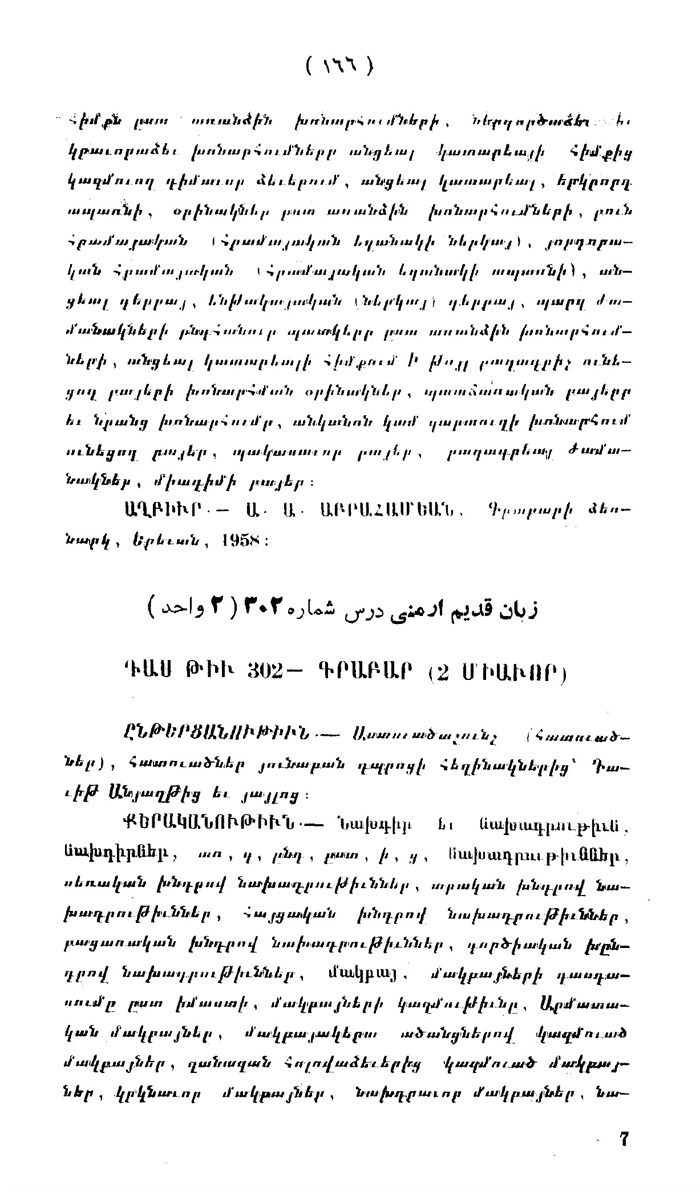 ( ١٦٦ )
հիմքն ըստ առանձին խոնարհումների, ներգործաձեւ եւ
կրաւորաձեւ խոնարհումները անցեալ կատարեալի հիմքից
կազմուող դիմաւոր ձեւերում, անցեալ կատարեալ, երկրորդ
ապառնի, օրինակներ ըստ առանձին խոնարհումների, բուն
հրամայական (հրամայական եղանակի ներկայ), յորդորա—
կան հրամայական (հրամայական եղանակի ապառնի), ան—
ցեալ դերբայ, ենթակայական (ներկայ) դերբայ, պարզ ժա—
մանակների ընդհանուր պատկերը ըստ առանձին խոնարհում—
ների, անցեալ կատարեալի հիմքում Ի թոյլ բաղադրիչ ունե—
ցող բայերի խոնարհման օրինակներ, պատճառական բայերը
եւ նրանց խոնարհումը, անկանոն կամ զարտուղի խոնարհում
ունեցող բայեր, պակասաւոր բայեր, բաղադրեալ ժամա—
նակներ, միադիմի բայեր:
ԱՂԲԻՒՐ.— Ա. Ա. ԱԲՐԱՀԱՄԵԱՆ, Գրաբարի ձեռ—
նարկ, Երեւան, 1958:
زبان قدیم ارمنی درس شماره ۳۰۲ ( ۲ واحد )
ԴԱՍ ԹԻՒ 302— ԳՐԱԲԱՐ (2 ՄԻԱՒՈՐ)
ԸՆԹԵՐՑԱՆՈՒԹԻՒՆ.— Աստուածաշունչ (հատուած—
ներ), հատուածներ յունաբան դպրոցի հեղինակներից՝ Դա—
ւիթ Անյաղթից եւ յայլոց:
ՔԵՐԱԿԱՆՈՒԹԻՒՆ.— Նախդիր եւ նախադրութիւն,
նախդիրներ, առ, զ, ընդ, ըստ, ի, ց, նախադրութիւններ,
սեռական խնդրով նախադրութիւններ, տրական խնդրով նա—
խադրութիւններ, հայցական խնդրով նախադրութիւններ,
բացառական խնդրով նախադրութիւններ, գործիական խըն—
դրով նախադրութիւններ, մակբայ, մակբայների դասդա—
սումը ըստ իմաստի, մակբայների կազմութիւնը, Արմատա—
կան մակբայներ, մակբայակերտ ածանցներով կազմուած
մակբայներ, զանազան հոլովաձեւերից կազմուած մակբայ—
ներ, կրկնաւոր մակբայներ, նախդրաւոր մակբայներ, նա—
7